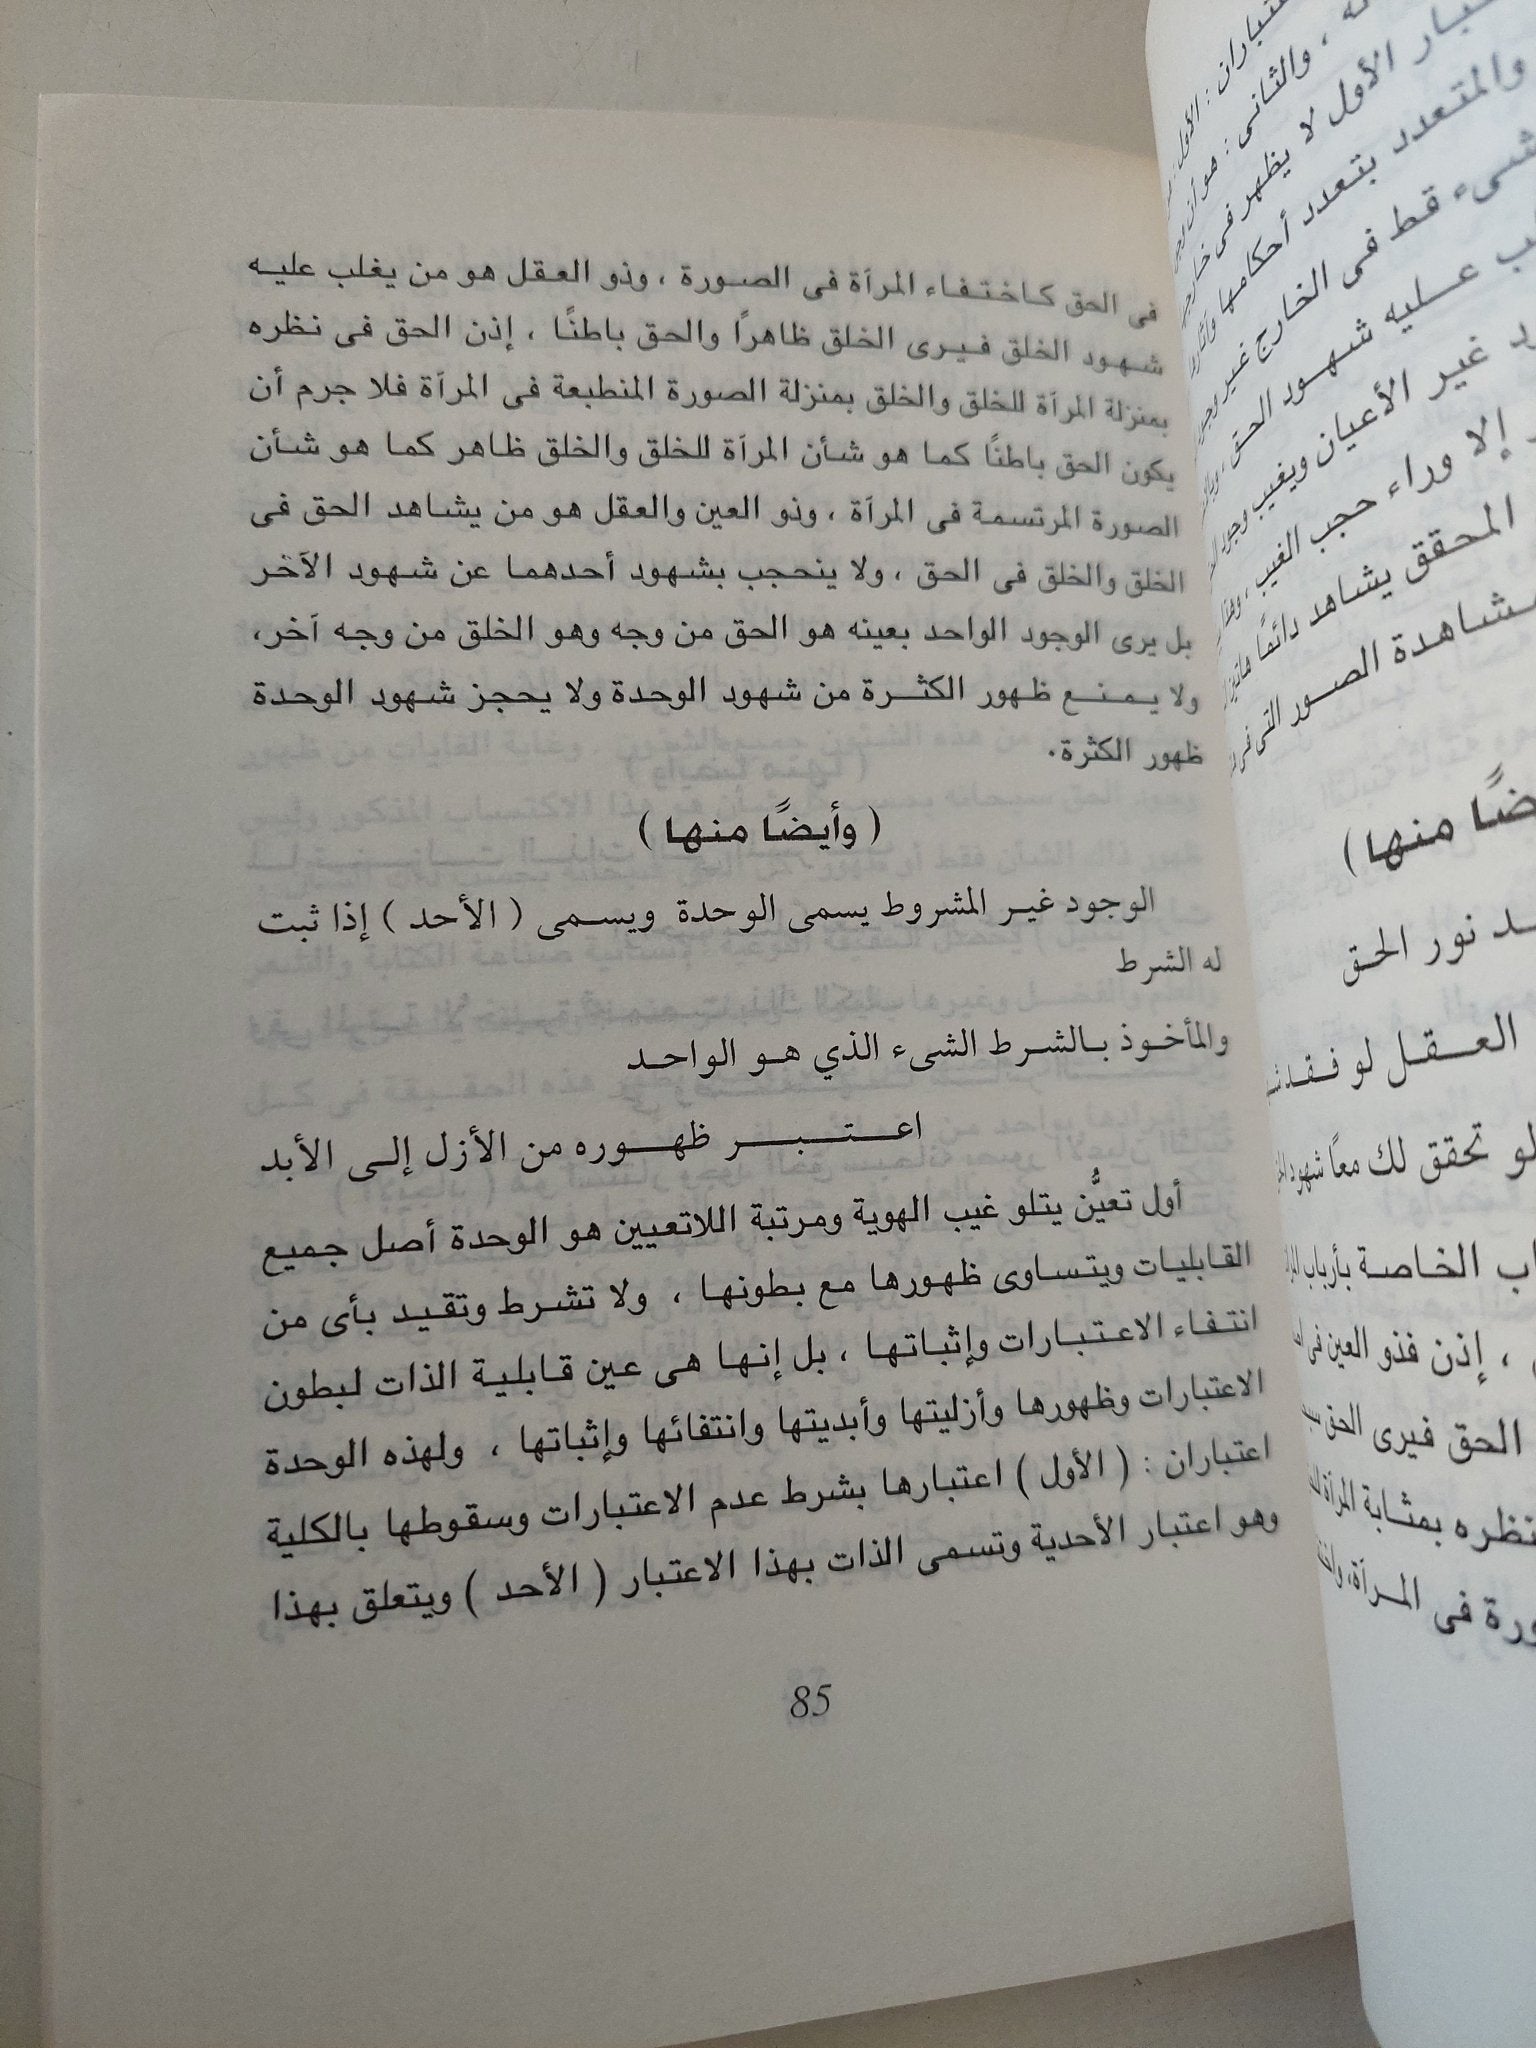 فى الحق كاختفاء المرآة فى الصورة ، وذو العقل هو من يغلب عليه
شهود الخلق فيرى الخلق ظاهرًا والحق باطنًا ، إذن الحق فى نظره
بمنزلة المرآة للخلق والخلق بمنزلة الصورة المنطبعة فى المرآة فلا جرم أن
يكون الحق باطنًا كما هو شأن المرآة للخلق والخلق ظاهر كما هو شأن
الصورة المرتسمة فى المرآة ، وذو العين والعقل هو من يشاهد الحق فى
الخلق والخلق فى الحق ، ولا ينحجب بشهود أحدهما عن شهود الآخر
بل يرى الوجود الواحد بعينه هو الحق من وجه وهو الخلق من وجه آخر،
ولا يمنع ظهور الكثرة من شهود الوحدة ولا يحجز شهود الوحدة
ظهور الكثرة.
( وأيضًا منها )
الوجود غير المشروط يسمى الوحدة ويسمى ( الأحد ) إذا ثبت
له الشرط
والمأخوذ بالشرط الشىء الذي هو الواحد
اعتبر ظهوره من الأزل إلى الأبد
أول تعيُّن يتلو غيب الهوية ومرتبة اللاتعيين هو الوحدة أصل جميع
القابليات ويتساوى ظهورها مع بطونها ، ولا تشرط وتقيد بأى من
انتفاء الاعتبارات وإثباتها ، بل إنها هى عين قابلية الذات لبطون
الاعتبارات وظهورها وأزليتها وأبديتها وانتفائها وإثباتها ، ولهذه الوحدة
اعتباران : ( الأول ) اعتبارها بشرط عدم الاعتبارات وسقوطها بالكلية
وهو اعتبار الأحدية وتسمى الذات بهذا الاعتبار ( الأحد ) ويتعلق بهذا
85
والثانى : هو أن
الأول لا يظهر فى
والمتعدد بتعدد أحكامها
شىء قط فى الخارج غير
عليه شهود الحق
غير الأعيان ويغيب وجود
إلا وراء حجب الغيب ،
المحقق يشاهد دائمًا
الصور التى فى
منها )
نور الحق
العقل لو
تحقق لك معًا شهود
الخاصة بأرباب
، إذن فذو العين فى
الحق فيرى الحق
نظره بمثابة المرآة
فى المرآة،